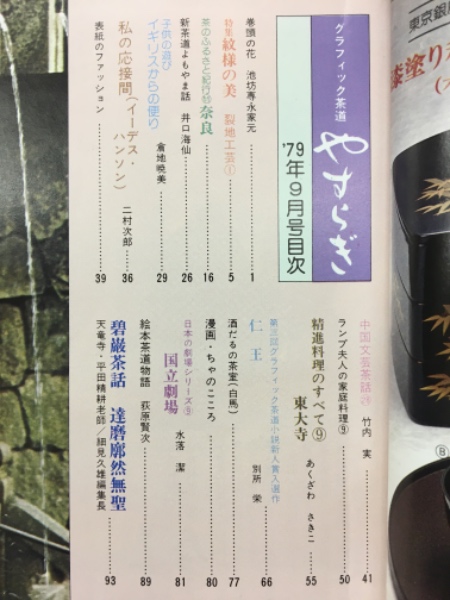 グラフィック茶道
やすらぎ
'79年9月号目次
巻頭の花 池坊専永家元 1
特集 紋様の美 裂地工芸① 5
茶のふるさと紀行 奈良 16
新茶道よもやま話 井口海仙 26
子供の遊び
イギリスからの便り 倉地暁美 29
私の応接間(イーデス・ハンソン) 二村次郎 36
表紙のファッション 39
中国文芸茶話 竹内 実 41
ランプ夫人の家庭料理⑨ 50
精進料理のすべて⑨
東大寺 あくざわ さきこ 55
第三回グラフィック茶道小説新人賞入選作
仁王 別所 栄 66
酒だるの茶室(白馬) 77
漫画・ちゃのこころ 80
日本の劇場シリーズ⑨
国立劇場 水落 潔 81
絵本茶道物語 萩原賢次 89
碧巌茶話 達磨廓然無聖
天竜寺・平田精耕老師/細見久雄編集長 93
東京銀
漆塗り
⑧